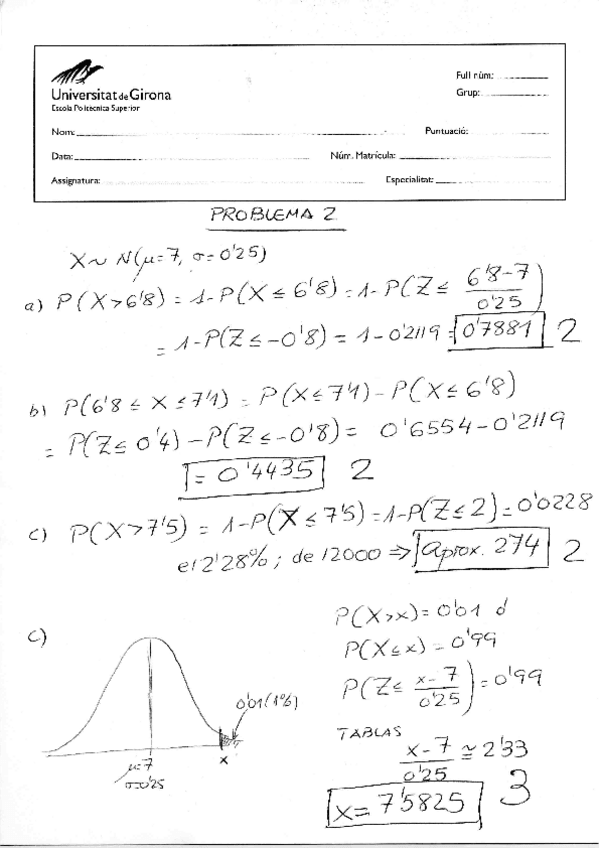 Universitat de Girona
Escola Politècnica Superior
Full núm:
Grup:
Nom:
Puntuació:
Data:
Núm. Matrícula:
Assignatura:
Especialitat:
PROBLEMA 2
X ~ N(μ=7, σ=0'25)
a) P(X>6'8) = 1-P(X ≤ 6'8) = 1-P(Z ≤ (6'8-7)/0'25)
= 1-P(Z ≤ -0'8) = 1-0'2119 = 0'7881 2
b) P(6'8 ≤ X ≤ 7'1) = P(X ≤ 7'1) - P(X ≤ 6'8)
= P(Z ≤ 0'4) - P(Z ≤ -0'8) = 0'6554 - 0'2119
= 0'4435 2
c) P(X>7'5) = 1-P(X ≤ 7'5) = 1-P(Z ≤ 2) = 0'0228
el 2'28%; de 12000 ⇒ Aprox. 274 2
c)
0'01 (1%)
μ=7
σ=0'25
x
P(X>x) = 0'01 ó
P(X ≤ x) = 0'99
P(Z ≤ (x-7)/0'25) = 0'99
TABLAS
(x-7)/0'25 ≅ 2'33
x = 7'5825 3